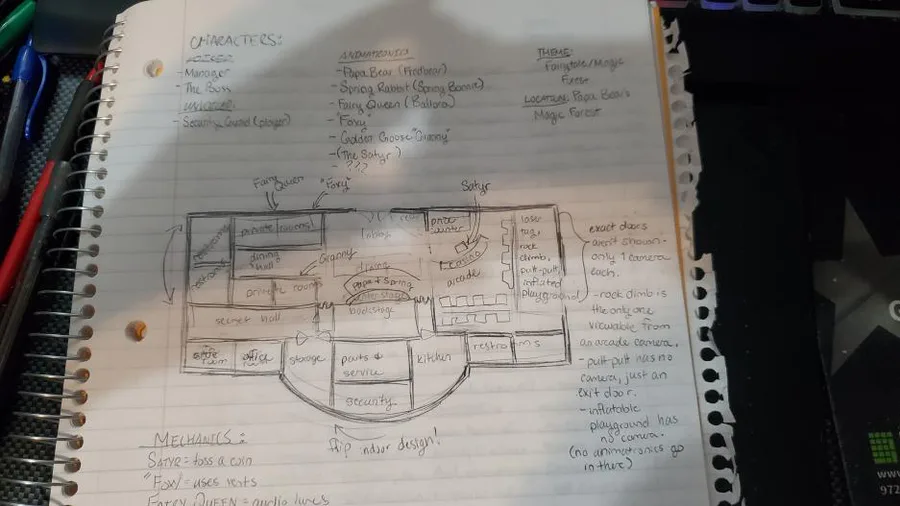 CHARACTERS:
VOICED:
- Manager
- The Boss
UNVOICED:
- Security Guard (player)
ANIMATRONICS
- Papa Bear (Fredbear)
- Spring Rabbit (Spring Bonnie)
- Fairy Queen (Ballora)
- "Foxy"
- Golden Goose "Granny"
- (The Satyr)
- ???
THEME:
Fairytale/Magic
Forest
LOCATION: Papa Bear's
Magic Forest
Fairy
Queen
"Foxy"
Satyr
restrooms
private rooms
lobby
prize
counter
dining
hall
Granny
private rooms
dining
Papa & Spring
center stage
backstage
casino
arcade
laser
tag,
rock
climb,
putt-putt,
inflated
playground
secret hall
safe
room
office
storage
parts &
service
kitchen
restrooms
security
flip indoor design!
exact doors
aren't shown.
only 1 camera
each.
- rock climb is
the only one
viewable from
an arcade camera.
- putt-putt has no
camera, just an
exit door.
- inflatable
playground has
no camera.
(no animatronics go
in there)
MECHANICS:
SATYR = toss a coin
"FOXY" = uses vents
FAIRY QUEEN = audio lures
972